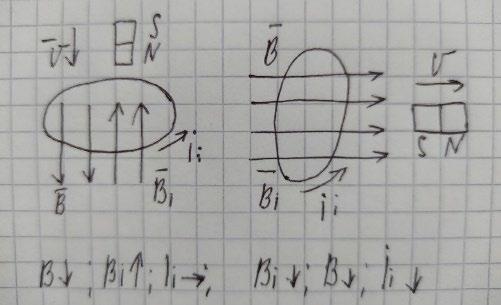 V̅↓ S
N
B̅ B̅i Ii
B̅ V̅
S N
B̅i ii
B↓; Bi↑; Ii→; Bi↓; B↓; Ii↓